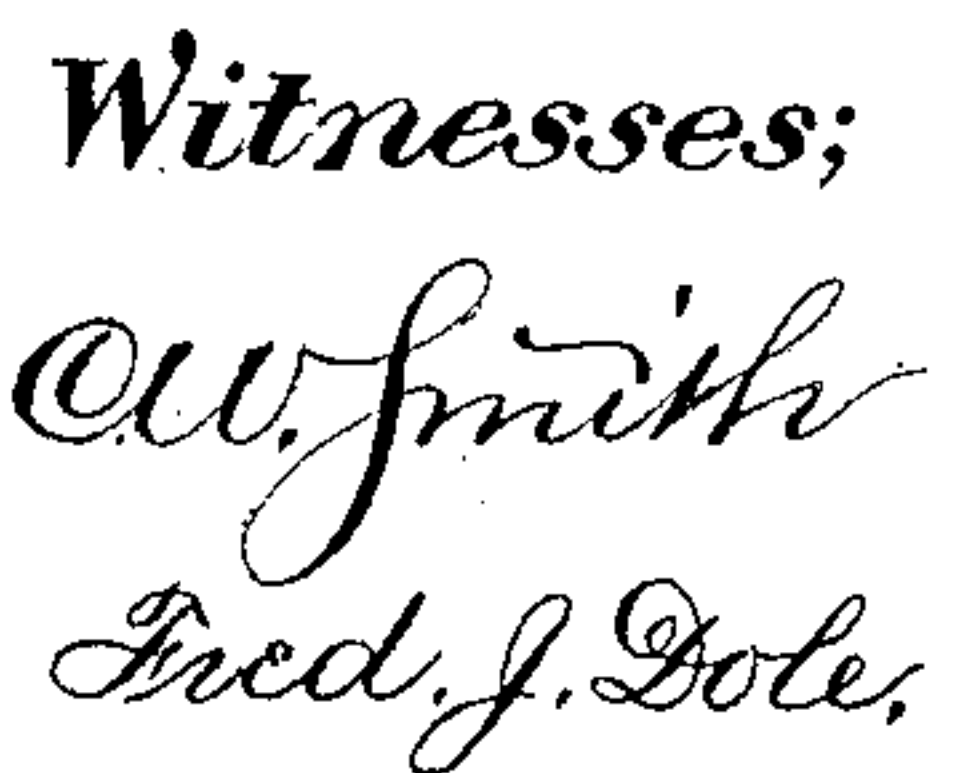 Witnesses;
C.W. Smith
Fred. J. Dole.